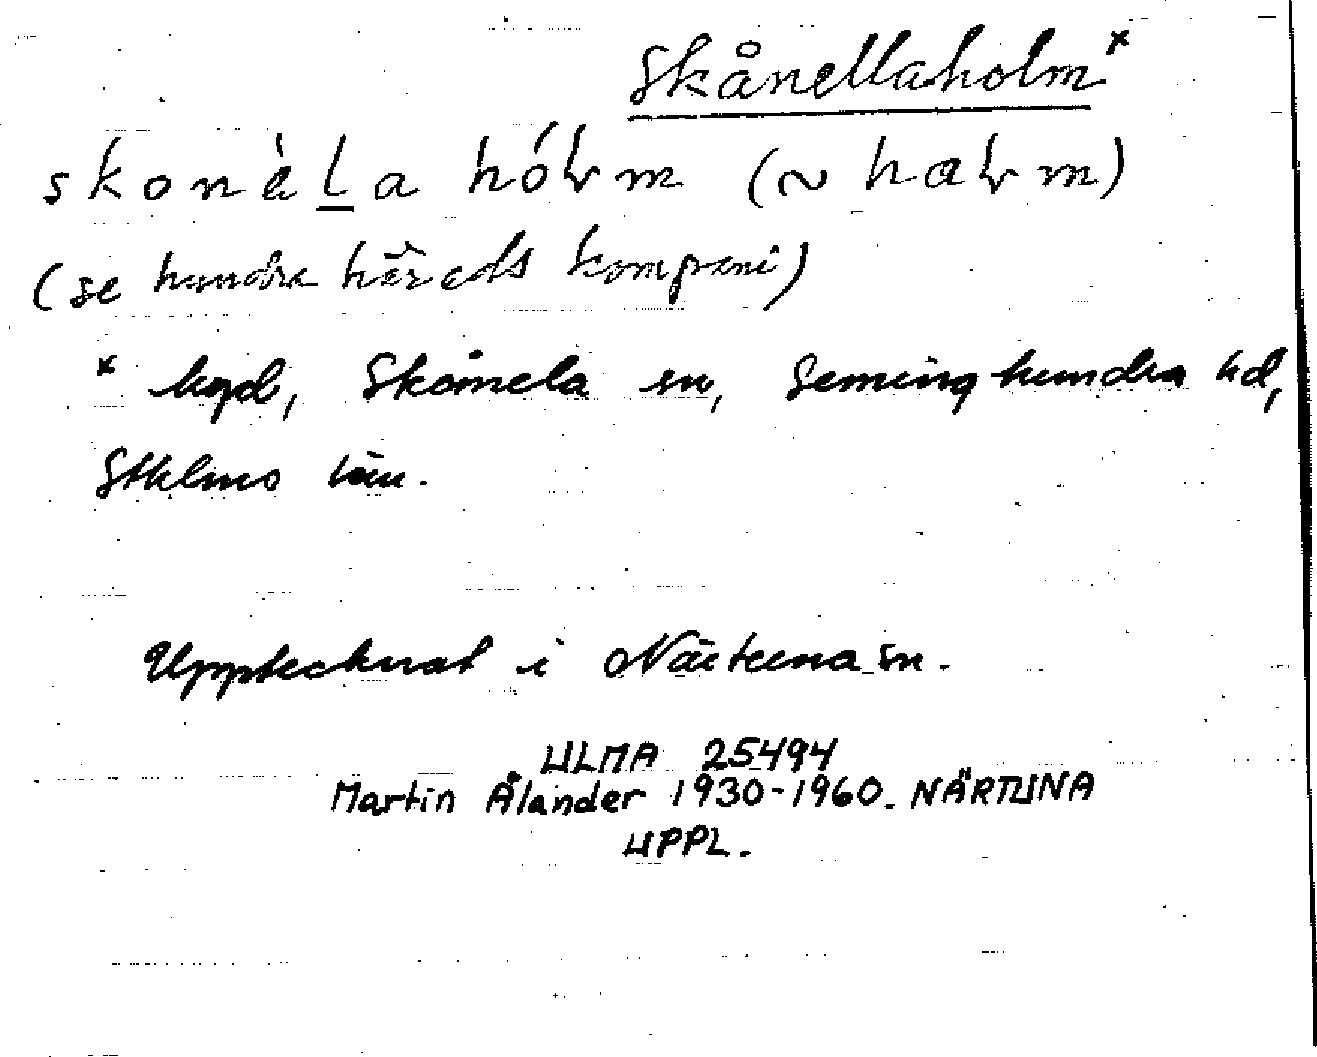 Skånellaholm x
skonèḺa hóƚm (~ haƚm)
(se hundra härads kompani)
x hgd, Skånela sn, Seminghundra hd,
Sthlms län.
Upptecknat i Närtuna sn.
ULMA 25494
Martin Ålander 1930-1960. NÄRTUNA
UPPL.